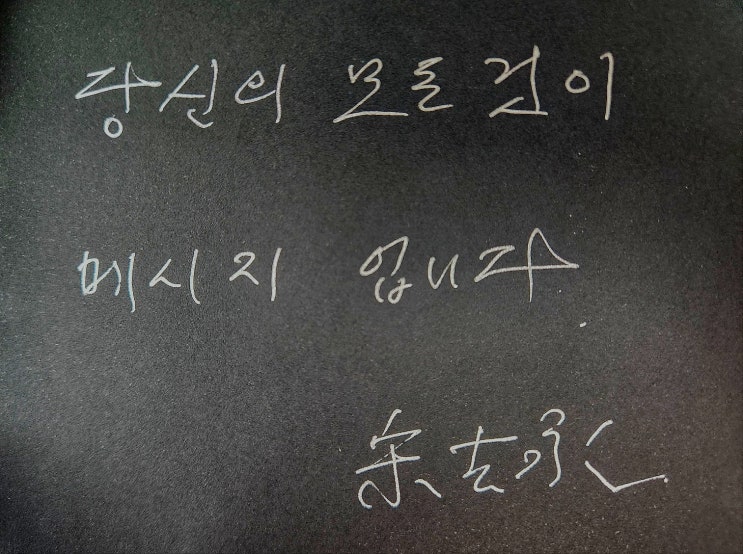 당신의 모든 것이
메시지 입니다.